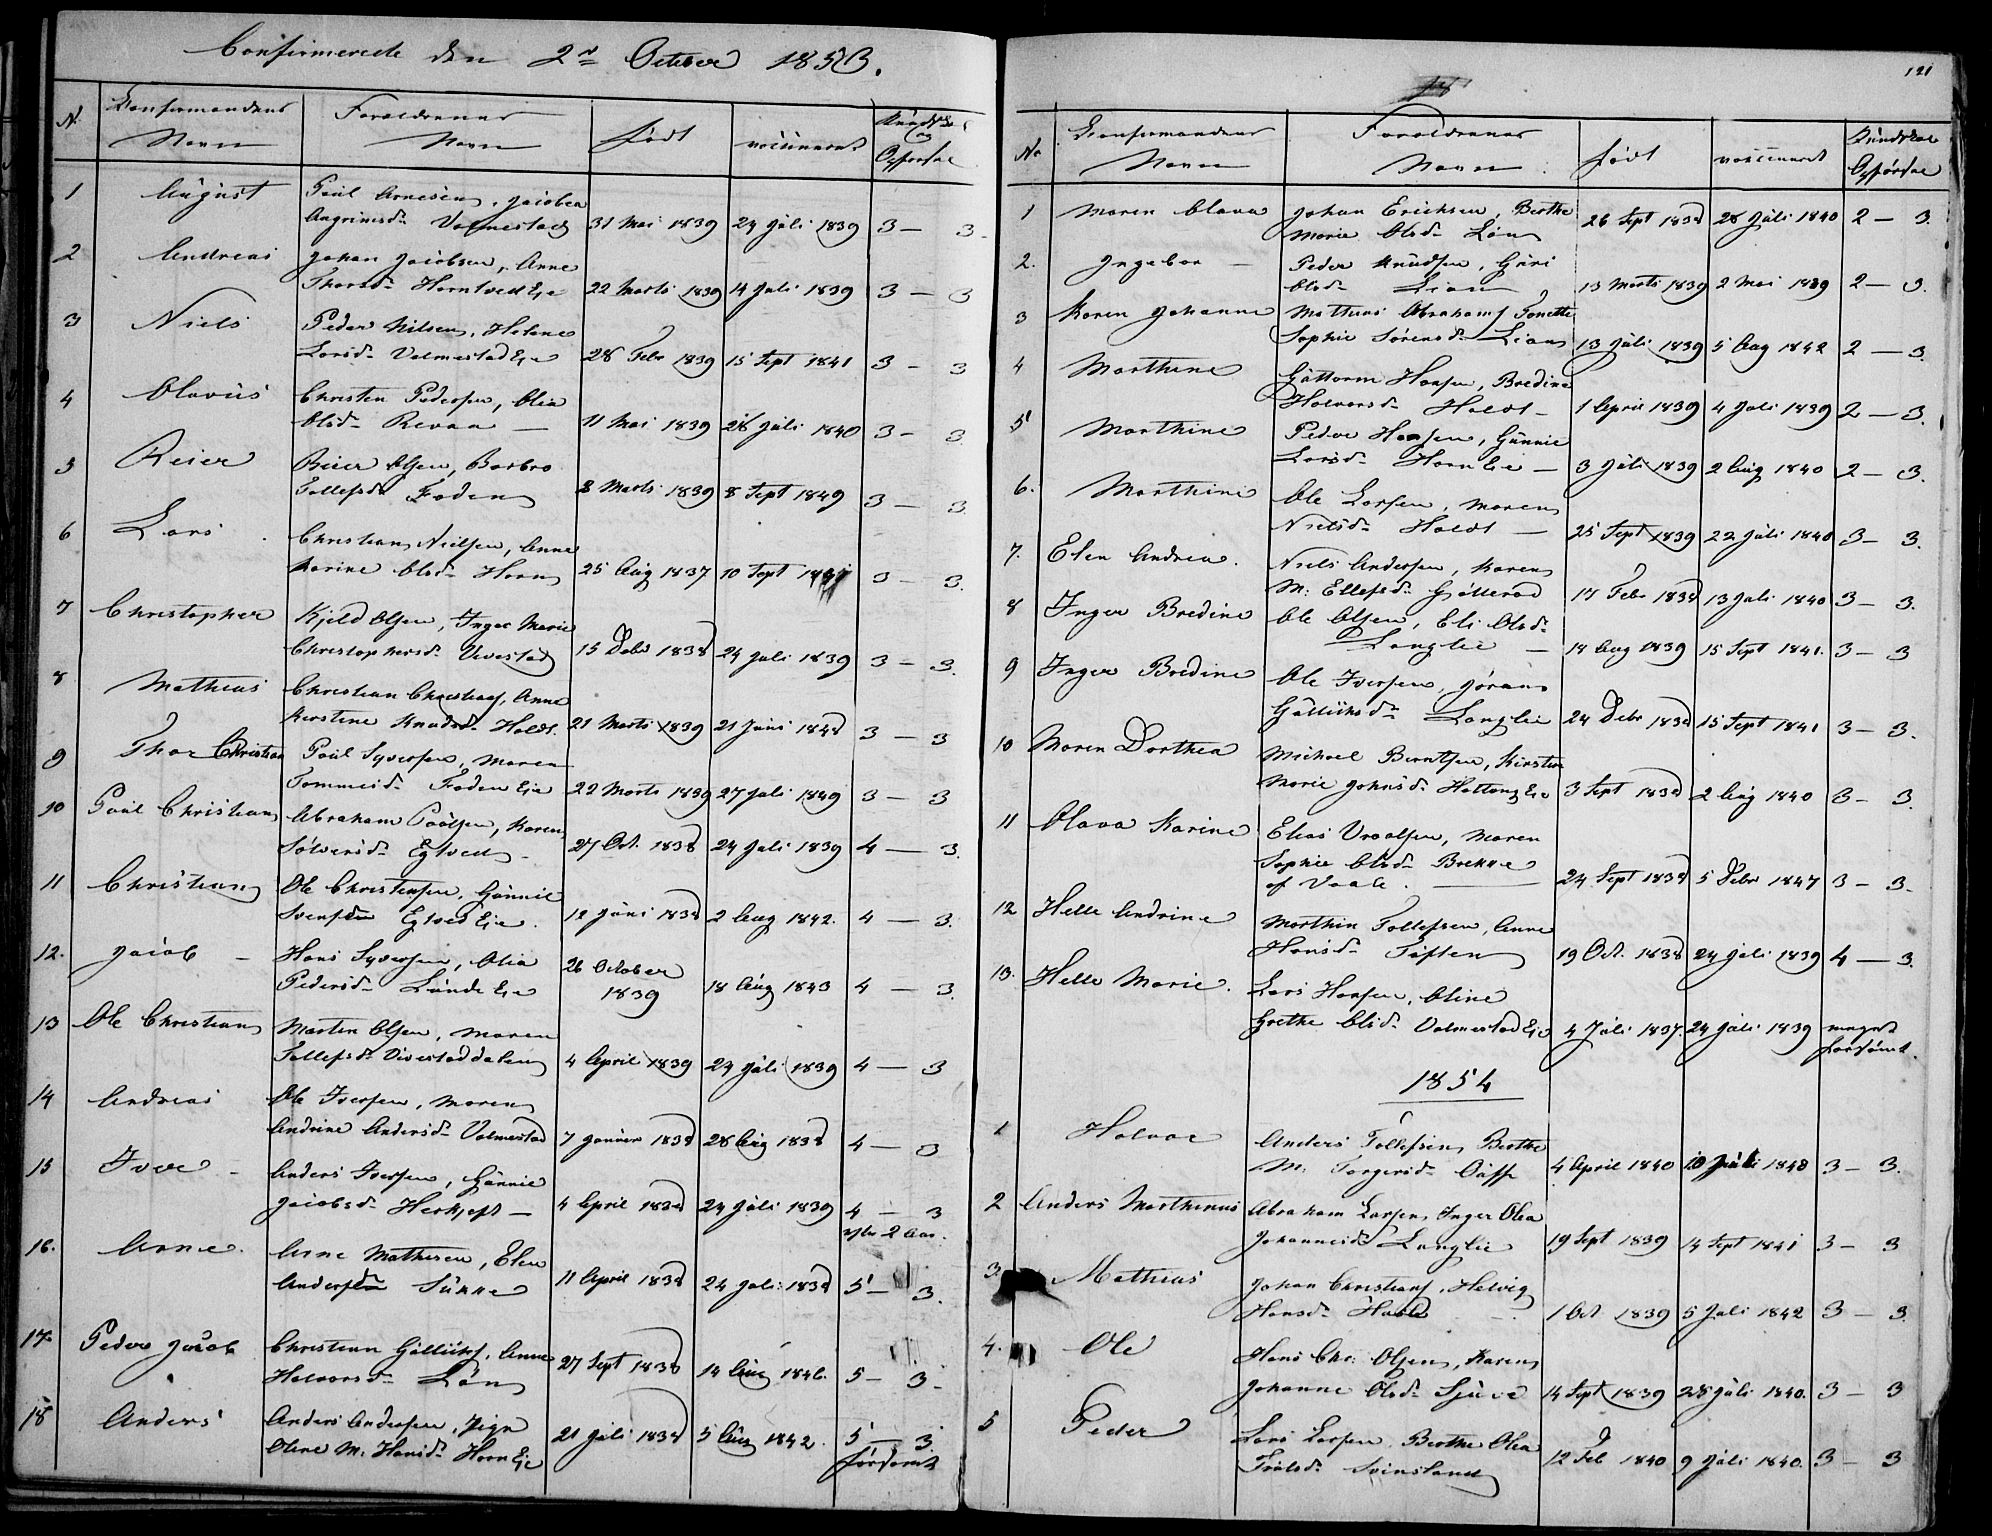 Confirmerede den 2den October 1853.
No Confirmandens Navn Forældrenes Navn Født vaccineret Kundskab og Opførsel
1 August Poul Arnesen, Jacobea
Angrimsd. Valmestad 31 Mai 1839 24 Juli 1839 3 — 3
2 Andreas Johan Jacobsen, Anne
Thorsd. Horntvedt Eje 22 Marts 1839 14 Juli 1839 3 — 3
3 Niels Peder Nilsen, Helene
Larsd. Valmestad Eje 28 Febr 1839 15 Sept 1841 3 — 3
4 Olavus Christen Pedersen, Olia
Olsd. Revaa — 11 Mai 1839 28 Juli 1840 3 — 3
5 Reier Reier Olsen, Barbro
Tollefsd. Foden 8 Marts 1839 8 Sept 1849 3 — 3
6 Lars Christian Nielsen, Anne
Karine Olsd. Horn 25 Aug 1837 10 Sept 3 — 3.
7 Christopher Kjeld Olsen, Inger Marie
Christophersd. Vivestad 15 Debr 1838 24 Juli 1839 3 — 3.
8 Mathias Christian Christians, Anne
Kirstine Knudsd. Holdt. 21 Marts 1839 21 Juni 1848 3 — 3
9 Thor Christian Poul Syversen, Maren
Tommesd. Foden Eje 22 Marts 1839 27 Juli 1849 3 — 3
10 Poul Christian Abraham Poulsen, Karen
Sølversd. Egtvedt 27 Oct. 1838 24 Juli 1839 4 — 3.
11 Christian Ole Christensen, Gunnie
Svensdr Egtvedt Eje. 12 Juni 1838 2 Aug 1842. 4 — 3.
12. Jacob — Hans Syversen, Olia
Pedersd. Lunde Eje 26 October 1839 18 Aug 1843 4 — 3.
13 Ole Christian Martin Olsen, Maren
Tollefsd. Vivestaddalen 4 April 1839 24 Juli 1839 4 — 3
14 Andreas Ole Iversen, Maren
Andrine Andersd. Valmestad 7 Januar 1838 28 Aug 1838 4 — 3
15 Iver — Anders Iversen, Gunnie
Jacobsd. Herkjest — 4 April 1838 24 Juli 1839 4 — 3
efter 2 Aar.
16. Arne. Arne Mathesen, Elen
Andersdr Sukke 11 April 1838 24 Juli 1838 5 — 3.
17. Peder Jacob Christian Gulliks, Anne
Halvorsd. Løn 27 Sept 1838 14 Aug 1846. 5 — 3.
18 Anders Anders Andersen,
Oline M. Hansd. Horn Eje 21 Juli 1838 5 Aug 1842. 5 — 3
forsømt
121
No Confirmandens Navn Forældrenes Navn Født vaccineret Kundskab Opførsel
1 Maren Olava Johan Ericksen, Berthe
Marie Olsd. Løn 26 Sept 1838 28 Juli 1840 2 — 3.
2. Ingebor — Peder Knudsen, Guri
Olsd. Lian 13 Marts 1839 2 Mai 1839 2 — 3.
3 Karen Johanne Mathias Abrahams, Tonette
Sophie Sørensd. Lian 13 Juli 1839 5 Aug 1842 2 — 3.
4 Marthine Guttorm Hansen, Bredine
Halvorsd. Holdt — 1 April 1839 4 Juli 1839 2 — 3.
5 Marthine Peder Hansen, Gunnie
Larsd. Horn Eje — 3 Juli 1839 2 Aug 1840 2 — 3.
6. Marthine Ole Larsen, Maren
Nielsd. Holdt — 25 Sept 1839 22 Juli 1840 3 — 3.
7. Elen Andrea. Niels Andersen, Karen
M. Ellefsd. Gotterød 17 Febr 1838 13 Juli 1840 3 — 3.
8 Inger Bredine Ole Olsen, Eli Olsd.
Langlie — 18 Aug 1839 15 Sept 1841. 3 — 3
9 Inger Bredine Ole Iversen, Jøran
Gulliksd. Langlie 24 Debr 1838 15 Sept 1841 3 — 3.
10 Maren Dorthea Michael Berntsen, Kirsten
Marie Johnsd. Haltong Eje 3 Sept 1838 2 Aug 1840 3 — 3.
11 Olava Karine Elias Vraalsen, Maren
Sophie Olsd. Brekke
af Vaale. 24 Sept 1838 5 Debr 1847 3 — 3.
12 Helle Andrine Morthin Tollefsen, Anne
Hansd. Tuften 19 Oct. 1838 24 Juli 1839 4 — 3.
13. Helle Marie. Lars Hansen, Oline
Grethe Olsd. Valmestad Eje 4 Juli 1837. 24 Juli 1839 meget
forsømt.
1854
1 Halvor Anders Tollefsen, Berthe
M. Torgersd. 4 April 1840 10 Juli 1848 3 — 3.
2 Anders Marthinus Abraham Larsen, Inger Olea
Johannesd. Langlie 19 Sept 1839 14 Sept 1841 3 — 3
3. Mathias Johan Christians, Helvig
Hansd. 1 Oct 1839 5 Juli 1842 3 — 3.
4. Ole Hans Chr. Olsen, Karen
Johanne Olsd. Sjue 14 Sept 1839 28 Juli 1840. 3 — 3
5 Peder Lars Larsen, Berthe Olea
Troelsd. Svinsland 12 Feb 1840 9 Juli 1840. 3 — 3